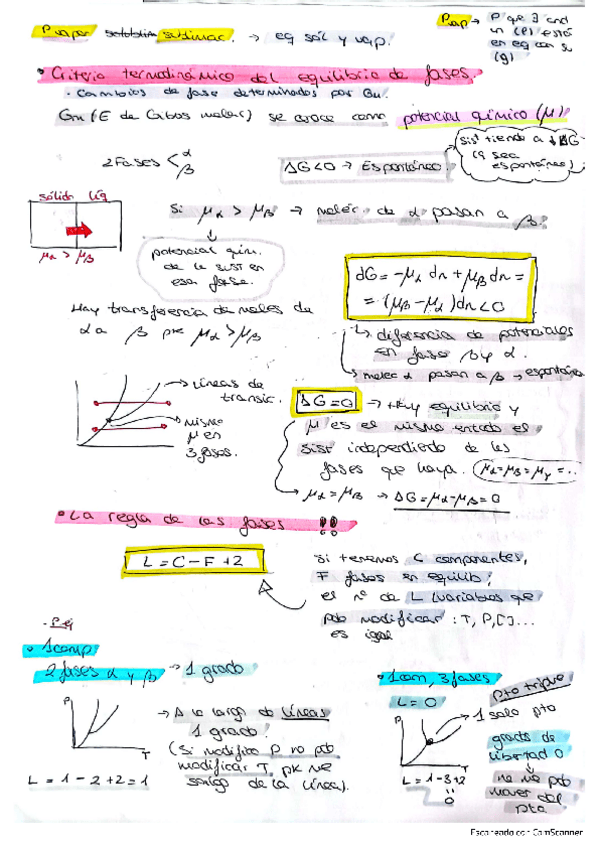 P vapor sublimac. → eq sól y vap.
Pvap → P que ∃ cnd
un (l) está
en eq con su
(g)
• Criterio termodinámico del equilibrio de fases.
· Cambios de fase determinados por Gm.
Gm (E de Gibbs molar) se conoce como potencial químico (μ)
2 fases < α
β
ΔG<0 → Espontáneo.
Sist tiende a ↓ΔG
(q sea
espontáneo)
sólido líq
μα > μβ
Si μα > μβ → moléc. de α pasan a β.
potencial quím.
de la sust en
esa fase.
dG = -μα dn + μβ dn =
= (μβ - μα) dn < 0
Hay transferencia de moles de
α a β pq μα > μβ
↳ diferencia de potenciales
en fase β y α.
↳ moléc α pasan a β → espontánea
→ Líneas de
transic.
mismo
μ en
3 fases.
ΔG = 0 → Hay equilibrio y
μ es el mismo en todo el
sist independiente de las
fases que haya. (μα = μβ = μγ = ...
→ μα = μβ → ΔG = μα - μβ = 0
• La regla de las fases !!
L = C - F + 2
Si tenemos C componentes,
F fases en equilib,
el nº de L (variables que
pdo modificar: T, P, [ ]...
es igual
- P ej
• 1 comp
2 fases α y β → 1 grado
P
T
L = 1 - 2 + 2 = 1
→ A lo largo de líneas
1 grado.
(Si modifico P no pdo
modificar T pk me
salgo de la línea).
• 1 com, 3 fases
L = 0
pto triple
P
T
→ 1 solo pto
grado de
libertad 0
L = 1 - 3 + 2
0
no me pdo
mover del
pto
Escaneado con CamScanner